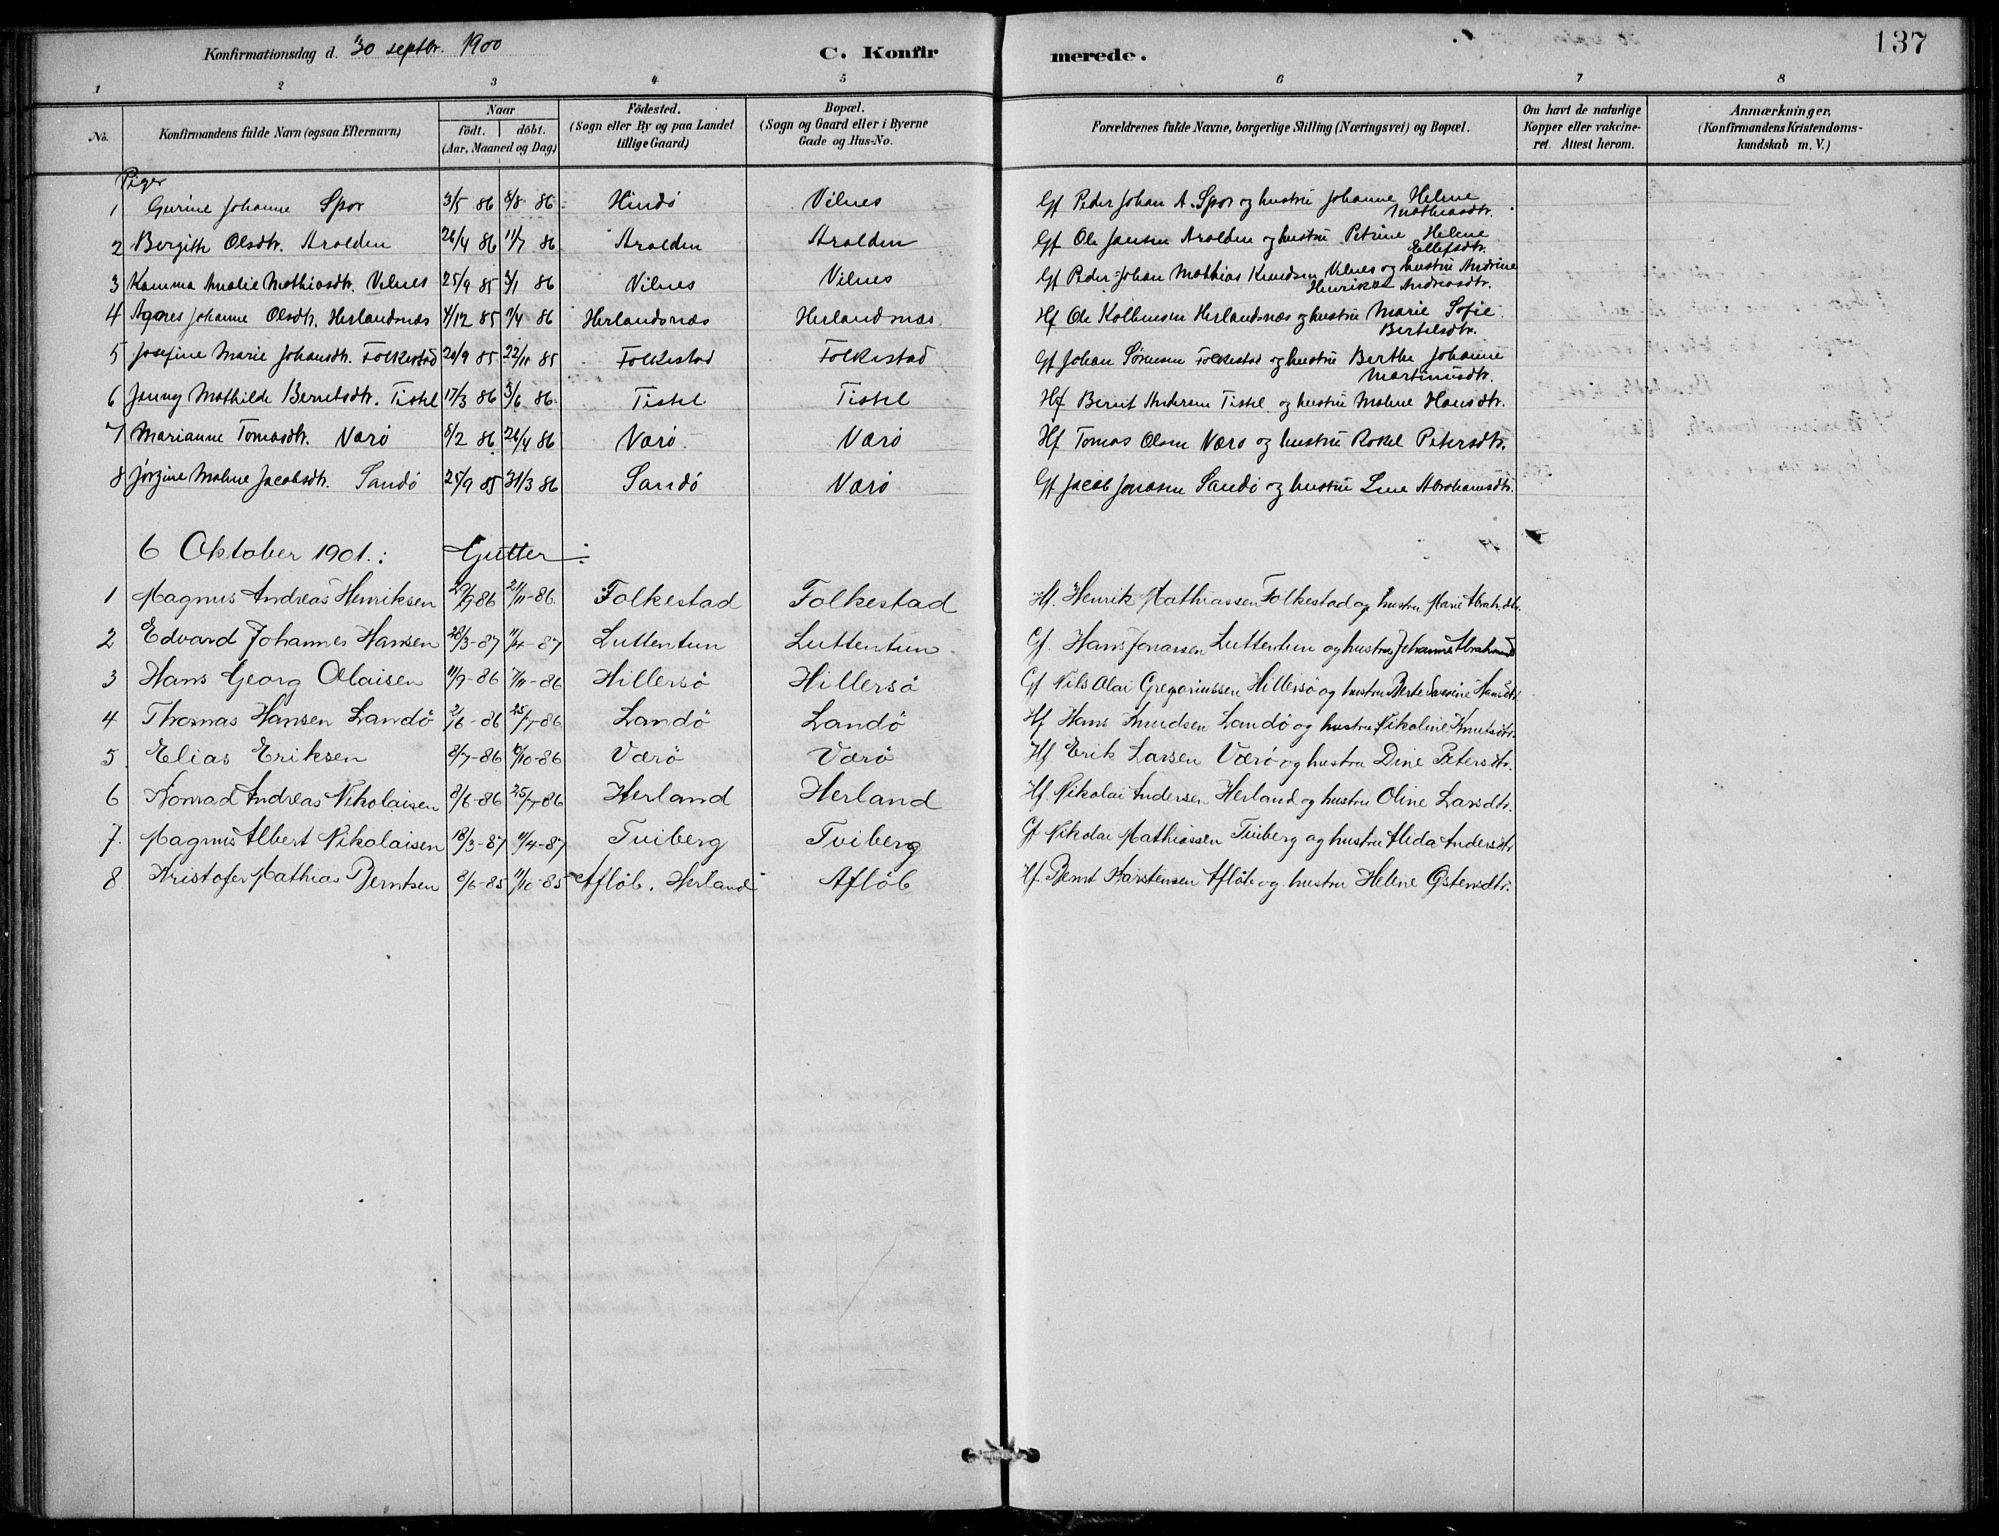 Konfirmationsdag d. 30 septbr. 1900
C. Konfirmerede.
137
1 2 3 4 5 6 7 8
No. Konfirmandens fulde Navn (ogsaa Efternavn) Naar födt. döbt. (Aar, Maaned og Dag) Födested. (Sogn eller By og paa Landet tillige Gaard) Bopæl. (Sogn og Gaard eller i Byerne Gade og Hus-No. Forældrenes fulde Navne, borgerlige Stilling (Næringsvei) og Bopæl. Om havt de naturlige Kopper eller vakcineret. Attest herom. Anmærkninger, (Konfirmandens Kristendomskundskab m. V.)
Piger
1 Gurine Johanne Spor 3/5 86 8/8 86 Hindö Vilnes Gf Peder Johan A. Spor og hustru Johanne Helene Mathiasdtr.
2 Bergitte Olsdtr. Aralden 26/4 86 11/7 86 Aralden Aralden Gf Ole Jansen Aralden og hustru Petrine Helene Ellefsdtr.
3 Kamma Amalie Mathiasdtr. Vilnes 25/9 85 3/1 86 Vilnes Vilnes Gf Peder Johan Mathias Knudsen Vilnes og hustru Andrine Henrikke Andreasdtr.
4 Agnes Johanne Olsdtr. Herlandsnæs 4/12 85 1/4 86 Herlandsnæs Herlandsnæs Hf Ole Kolbensen Herlandsnæs og hustru Marie Sofie Bertelsdtr.
5 Josefine Marie Johansdtr. Folkestad 20/9 85 22/11 85 Folkestad Folkestad Gf Johan Sörensen Folkestad og hustru Berthe Johanne Martinusdtr.
6 Jenny Mathilde Berntsdtr. Tistel 17/3 86 3/6 86 Tistel Tistel Hf Bernt Andersen Tistel og hustru Malene Hansdtr.
7 Marianne Tomasdtr. Værö 8/2 86 26/4 86 Værö Værö Hf Tomas Olsen Værö og hustru Rakel Petersdtr.
8 Jörgine Malene Jacobsdtr. Sandö 25/9 85 31/3 86 Sandö Værö Gf Jacob Jonasen Sandö og hustru Line Abrahamsdtr.
6 Oktober 1901.: Gutter:
1 Magnus Andreas Henriksen 21/11-86 Folkestad Folkestad Hf. Henrik Mathiassen Folkestad og hustru Marie Abrahdtr.
2 Edvard Johannes Hansen 28/3-87 11/4-87 Luttentun Luttentun Gf. Hans Jonassen Luttentun og hustru Johanne
3 Hans Georg Olaisen 11/9-86 7/11-86 Hillersö Hillersö Gf Nils Olai Gregoriussen Hillersö og hustru Berte Severine Hansdtr.
4 Thomas Hansen Landö 2/6-86 25/7-86 Landö Landö Hf Hans Knudsen Landö og hustru Nikoline Knutsdtr.
5. Elias Eriksen 8/7-86 10/10-86 Værö Værö Hf. Erik Larsen Værö og hustru Dine Petersdtr.
6 Konrad Andreas Nikolaisen 8/6-86 25/7-86 Herland Herland Hf. Nikolai Andersen Herland og hustru Oline Larsdtr.
7. Magnus Albert Nikolaisen 18/3-87 11/4-87 Tviberg Tviberg Gf Nikolai Mathiassen Tviberg og hustru Alida Andersdtr
8 Kristofer Mathias Berntsen 8/6-85 11/10-85 Aflöb. Herland Aflöb Hf. Bernt Karstensen Aflöb og hustru Helene Östensdtr.